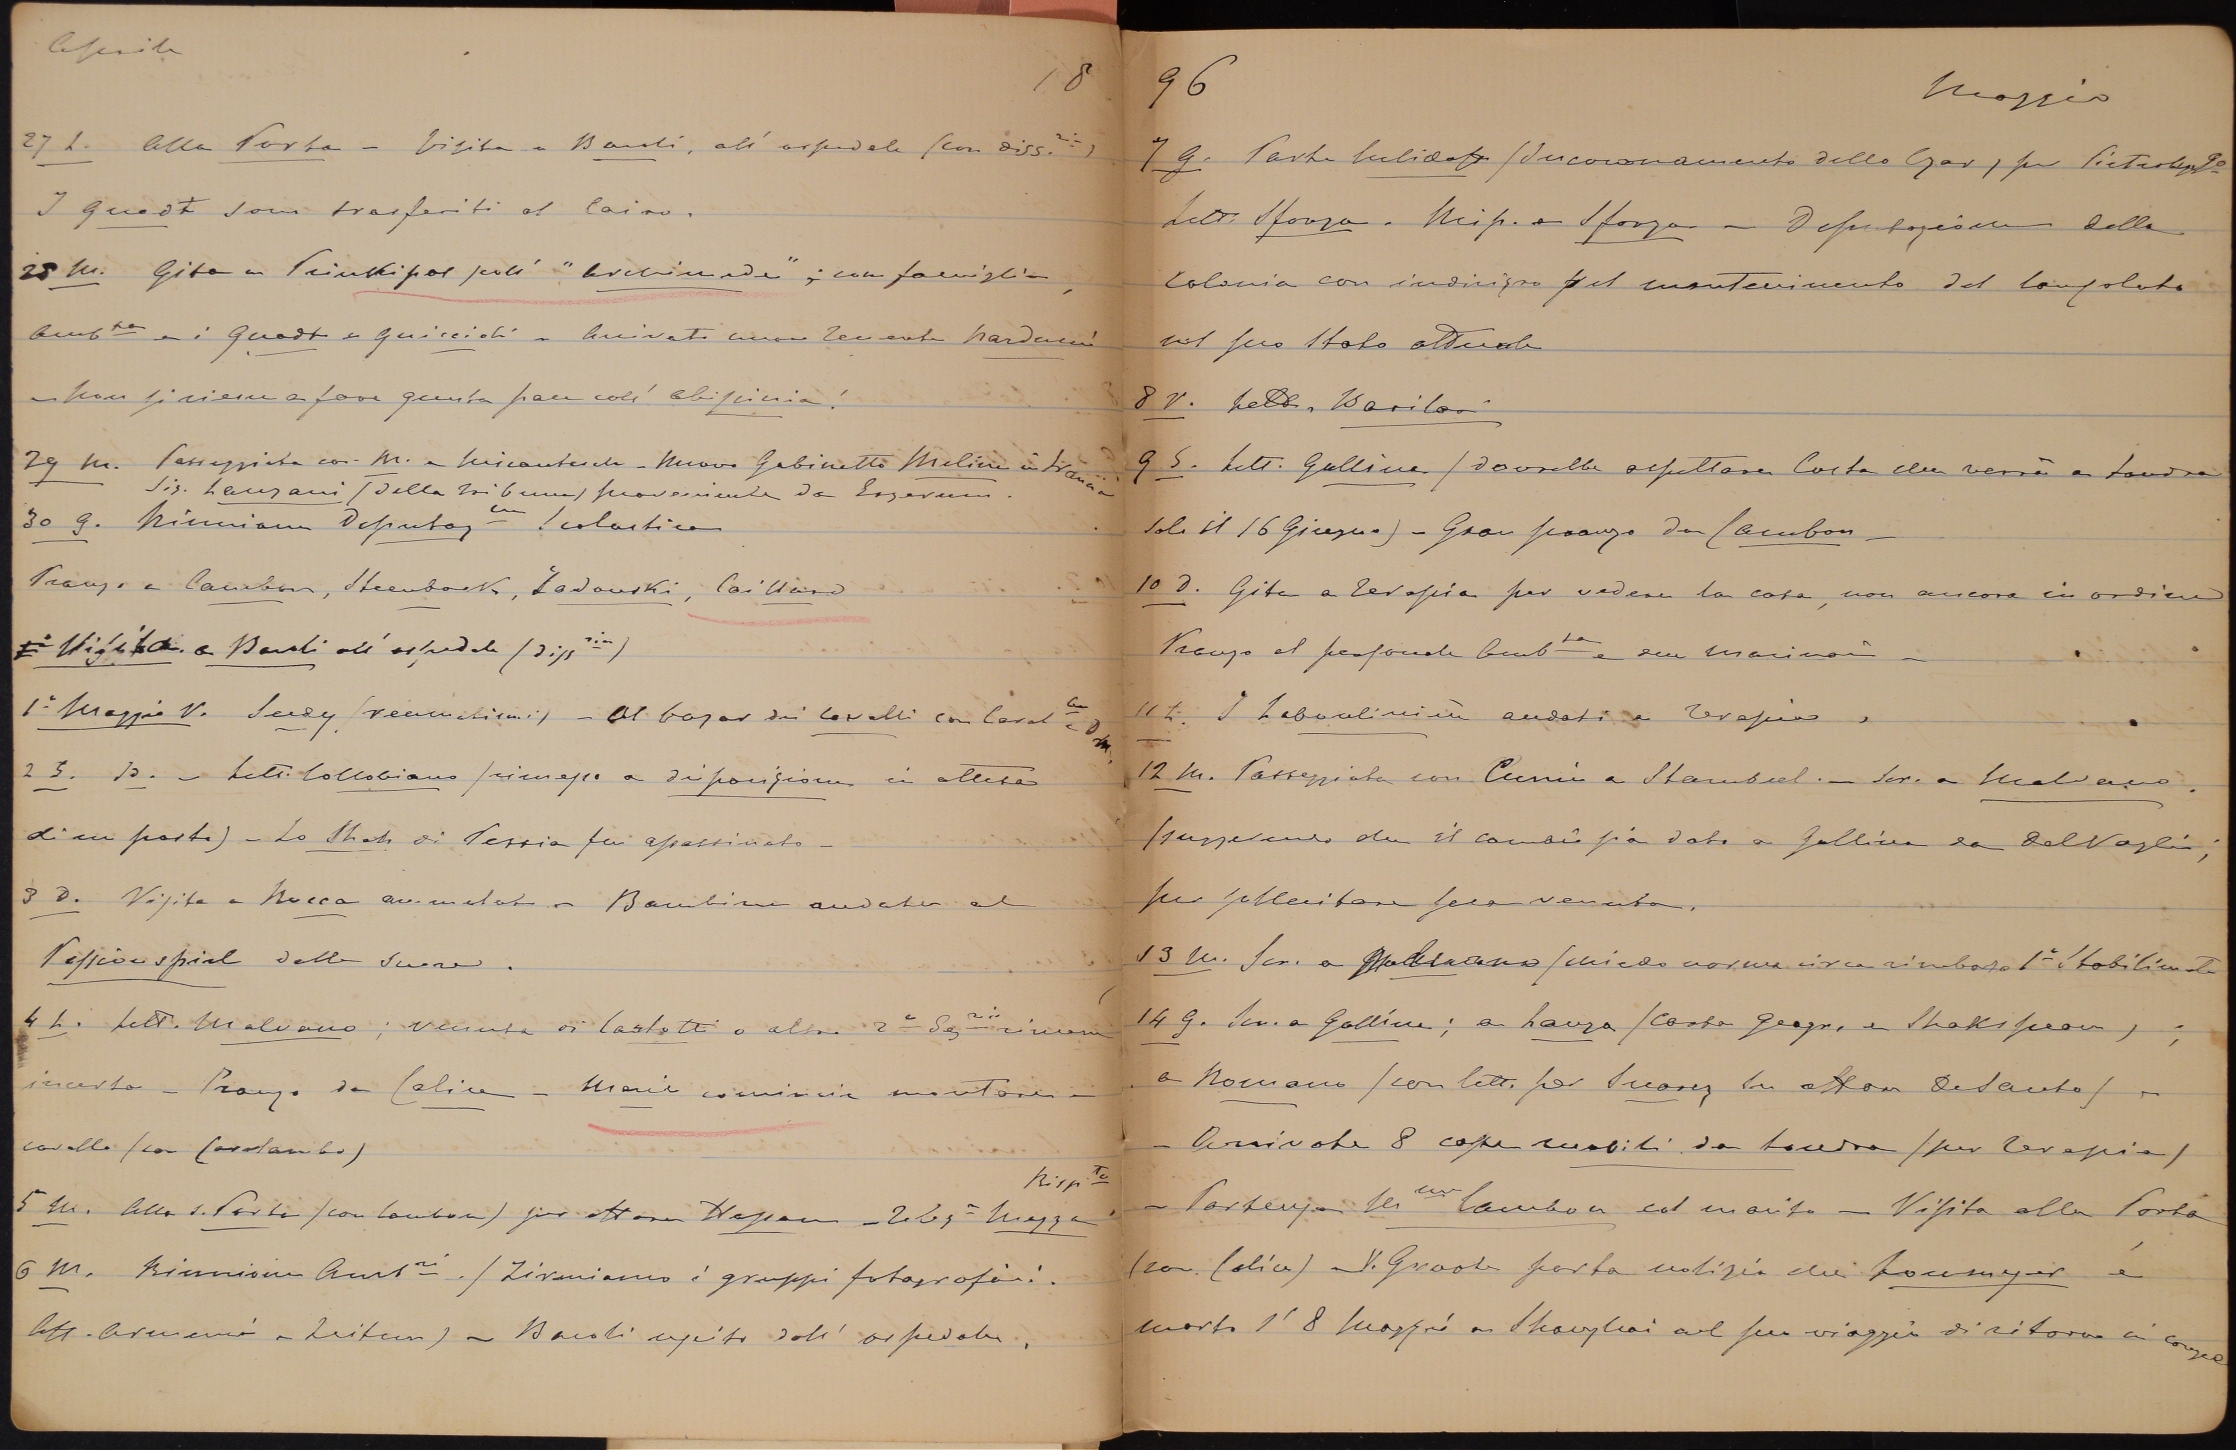 Aprile
18
27 L. Alla Porta - Visita a Baroli, all' ospedale (con diss.rie)
I Quadt sono trasferiti al Cairo.
28 M. Gita a Prinkipos coll' "Archimede"; con famiglia,
Amb.ta e i Quadt e Guiccioli - Arrivato nuovo Tenente Narducci
- Non si riesce a fare questa pace coll' Abissinia!
29 M. Passeggiata con M. a - Nuovo Gabinetto Meline in Francia
Sig. Lanzani (della Tribuna) proveniente da Erzerum.
30 G. Riunione Deputaz.ne Scolastica
Pranzo a Cambon, Steenbock, Zadowski, Caillard
Visita a Baroli all' ospedale (diss.ria)
1° Maggio V. Susy (reumatismi) - Al bazar dei cavalli con Caval.
2 S. Id. - Lett. Collobiano (rimesso a disposizione in attesa
di un posto) - Lo Shah di Persia fu assassinato -
3 D. Visita a Rocca ammalato - Bambine andate al
Passionspiel delle Suore.
4 L. Lett. Malvano; venuta di Carlotti o altro 2° Seg.rio rimane
incerta - Pranzo da Calice - Marie comincia montare a
cavallo (con Caralambo)
Risp.ta
5 M. Alla S. Porta (con Cambon) per affare Hassan - Teleg.a Mezza
6 M. Riunione Amb.ri. (Firmiamo i gruppi fotografici.
Aff. Armeni a Zeitun) - Baroli uscito dall' ospedale.
96
Maggio
7 G. Parte (Incoronamento dello Czar) per Pietrobgo
Lett. Sforza. Risp. a Sforza - Deputazione della
Colonia con indirizzo pel mantenimento del Consolato
nel suo Stato attuale
8 V. Lett. Barilari
9 S. Lett. Gallina (dovrebbe aspettare Costa che verrà a Londra
solo il 16 Giugno) - Gran pranzo da Cambon -
10 D. Gita a Terapia per vedere la casa, non ancora in ordine
Pranzo al personale Amb.ta e dei Marinai -
11 L. I andati a Terapia.
12 M. Passeggiata con Cunin a Stambul. - Scr. a Malvano.
(suggerendo che il cambio sia dato a Gallina da Dal Vaglio;
per sollecitare sua venuta.
13 M. Scr. a Malvano (chiedo norme circa rimborso 1° Stabilim.to
14 G. Scr. a Gallina; a Lanza (Carta geogr. e Shakspeare);
a Romano (con lett. per Suarez su affare DeSanto) -
- Arrivate 8 casse mobili da Londra (per Terapia)
- Partenza Mme Cambon col marito - Visita alla Porta
(con Calice) - V. Groote porta notizia che Loumyer è
morto l' 8 Maggio a Shanghai nel suo viaggio di ritorno in congedo